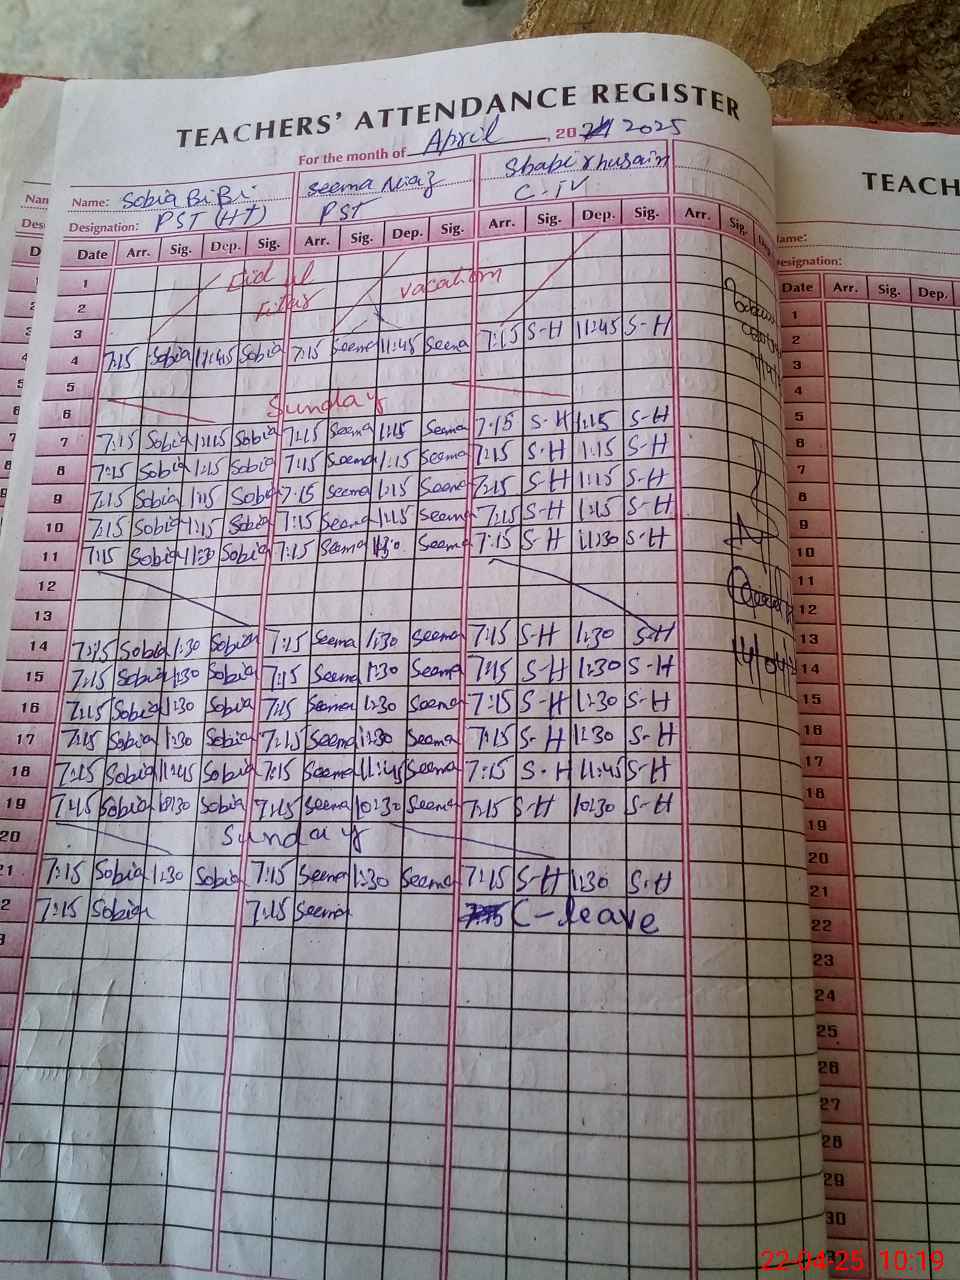 TEACHERS' ATTENDANCE REGISTER
For the month of April, 20 2025
Name: Sobia BiBi Seema Niaz Shabir husain
Designation: PST (HT) PST C-IV
Date Arr. Sig. Dep. Sig. Arr. Sig. Dep. Sig. Arr. Sig. Dep. Sig. Arr. Sig.
1 Eid ul vacation
2 Fitar
3
4 7:15 Sobia 11:45 Sobia 7:15 Seema 11:45 Seema 7:15 S-H 11:45 S-H
5
6 Sunday
7 7:15 Sobia 1:15 Sobia 7:15 Seema 1:15 Seema 7:15 S-H 1:15 S-H
8 7:15 Sobia 1:15 Sobia 7:15 Seema 1:15 Seema 7:15 S-H 1:15 S-H
9 7:15 Sobia 1:15 Sobia 7:15 Seema 1:15 Seema 7:15 S-H 1:15 S-H
10 7:15 Sobia 1:15 Sobia 7:15 Seema 1:15 Seema 7:15 S-H 1:15 S-H
11 7:15 Sobia 11:30 Sobia 7:15 Seema 11:30 Seema 7:15 S-H 11:30 S-H
12
13
14 7:15 Sobia 1:30 Sobia 7:15 Seema 1:30 Seema 7:15 S-H 1:30 S-H
15 7:15 Sobia 1:30 Sobia 7:15 Seema 1:30 Seema 7:15 S-H 1:30 S-H
16 7:15 Sobia 1:30 Sobia 7:15 Seema 1:30 Seema 7:15 S-H 1:30 S-H
17 7:15 Sobia 1:30 Sobia 7:15 Seema 1:30 Seema 7:15 S-H 1:30 S-H
18 7:15 Sobia 11:45 Sobia 7:15 Seema 11:45 Seema 7:15 S-H 11:45 S-H
19 7:15 Sobia 10:30 Sobia 7:15 Seema 10:30 Seema 7:15 S-H 10:30 S-H
20 Sunday
21 7:15 Sobia 1:30 Sobia 7:15 Seema 1:30 Seema 7:15 S-H 1:30 S-H
22 7:15 Sobia 7:15 Seema C-leave
TEACH
Name:
Designation:
Date Arr. Sig. Dep.
1
2
3
4
5
6
7
8
9
10
11
12
13
14
15
16
17
18
19
20
21
22
23
24
25
26
27
28
29
30
22-04-25 10:19